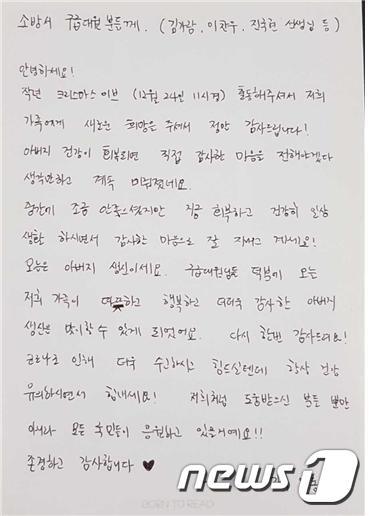 소방서 구급대원 분들께. (김가람, 이찬우, 진죽현 선생님 등)
안녕하세요!
작년 크리스마스 이브 (12월 24일 11시경) 출동해주셔서 저희
가족에게 새로운 희망을 주셔서 정말 감사드립니다!
아버지 건강이 회복되면 직접 감사한 마음을 전해야겠다
생각만하고 계속 미뤄졌네요.
중간에 조금 안좋으셨지만 지금 회복하고 건강히 일상
생활 하시면서 감사한 마음으로 잘 지내고 계세요!
오늘은 아버지 생신이세요. 구급대원님들 덕분에 오늘
저희 가족이 따뜻하고 행복하고 더더욱 감사한 아버지
생신을 맞이할 수 있게 되었어요. 다시 한번 감사드려요!
코로나로 인해 더욱 수고하시고 힘드실텐데 항상 건강
유의하시면서 힘내세요! 저희처럼 도움받으신 분들 뿐만
아니라 모든 국민들이 응원하고 있을거예요!!
존경하고 감사합니다 ♥
BORN TO READ
news1